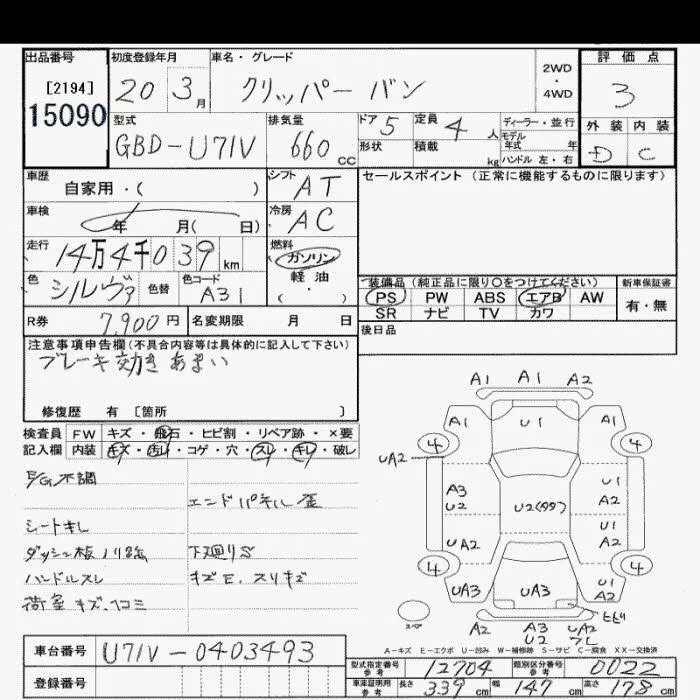 出品番号 初度登録年月 車名・グレード 2WD・4WD 評価点
[2194] 20 3月 クリッパー バン 3
15090
型式 排気量 ドア 5 定員 4人 ディーラー・並行 外装 内装
GBD-U71V 660cc 形状 積載 kg モデル年式 年 D C
ハンドル 左・右
車歴 自家用・( ) シフト AT セールスポイント(正常に機能するものに限ります)
車検 年 月( 日) 冷房 AC
走行 14万4千039km 燃料 ガソリン
軽油
・
( )
色 シルヴァ 色替 色コード A31 装備品(純正品に限り○をつけてください) 新車保証書
PS PW ABS エアB AW 有・無
R券 7,900円 名変期限 月 日 SR ナビ TV カワ
注意事項申告欄(不具合内容等は具体的に記入して下さい) 後日品
ブレーキ効きあまい
修復歴 有 [箇所 ]
検査員 FW キズ・飛石・ヒビ割・リペア跡・×要
記入欄 内装 キズ・汚れ・コゲ・穴・スレ・キレ・破し
E/G不調
エンドパネル歪
シートキレ
ダッシュ板ノリ跡 下廻りS
ハンドルスレ キズE、スリキズ
荷室キズ、凹ミ
A1 A1 A2
A1 U1 A1
4 4
UA2
A3 U1
U2 U2(99) A2
U1
UA2 A2
4 4
UA3 UA3 U1
A2
ヒビ
スペア A2 A3 A2
U2 フレ
A-キズ E-エクボ U-凹み W-補修跡 S-サビ C-腐食 XX-交換済
車台番号 U71V-0403493
型式指定番号 参考 12704 類別区分番号 参考 0022
登録番号 車庫証明用 参考 長さ 339cm 幅 147cm 高さ 178cm